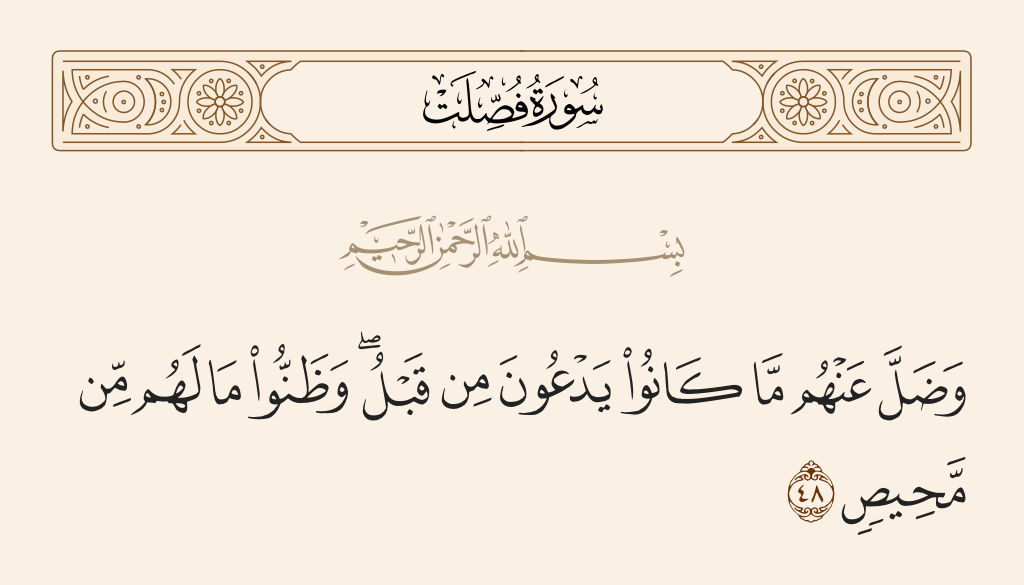 سُورَةُ فُصِّلَتْ
بِسْمِ ٱللَّهِ ٱلرَّحْمَٰنِ ٱلرَّحِيمِ
وَضَلَّ عَنْهُم مَّا كَانُوا۟ يَدْعُونَ مِن قَبْلُ ۖ وَظَنُّوا۟ مَا لَهُم مِّن
مَّحِيصٍ ٤٨